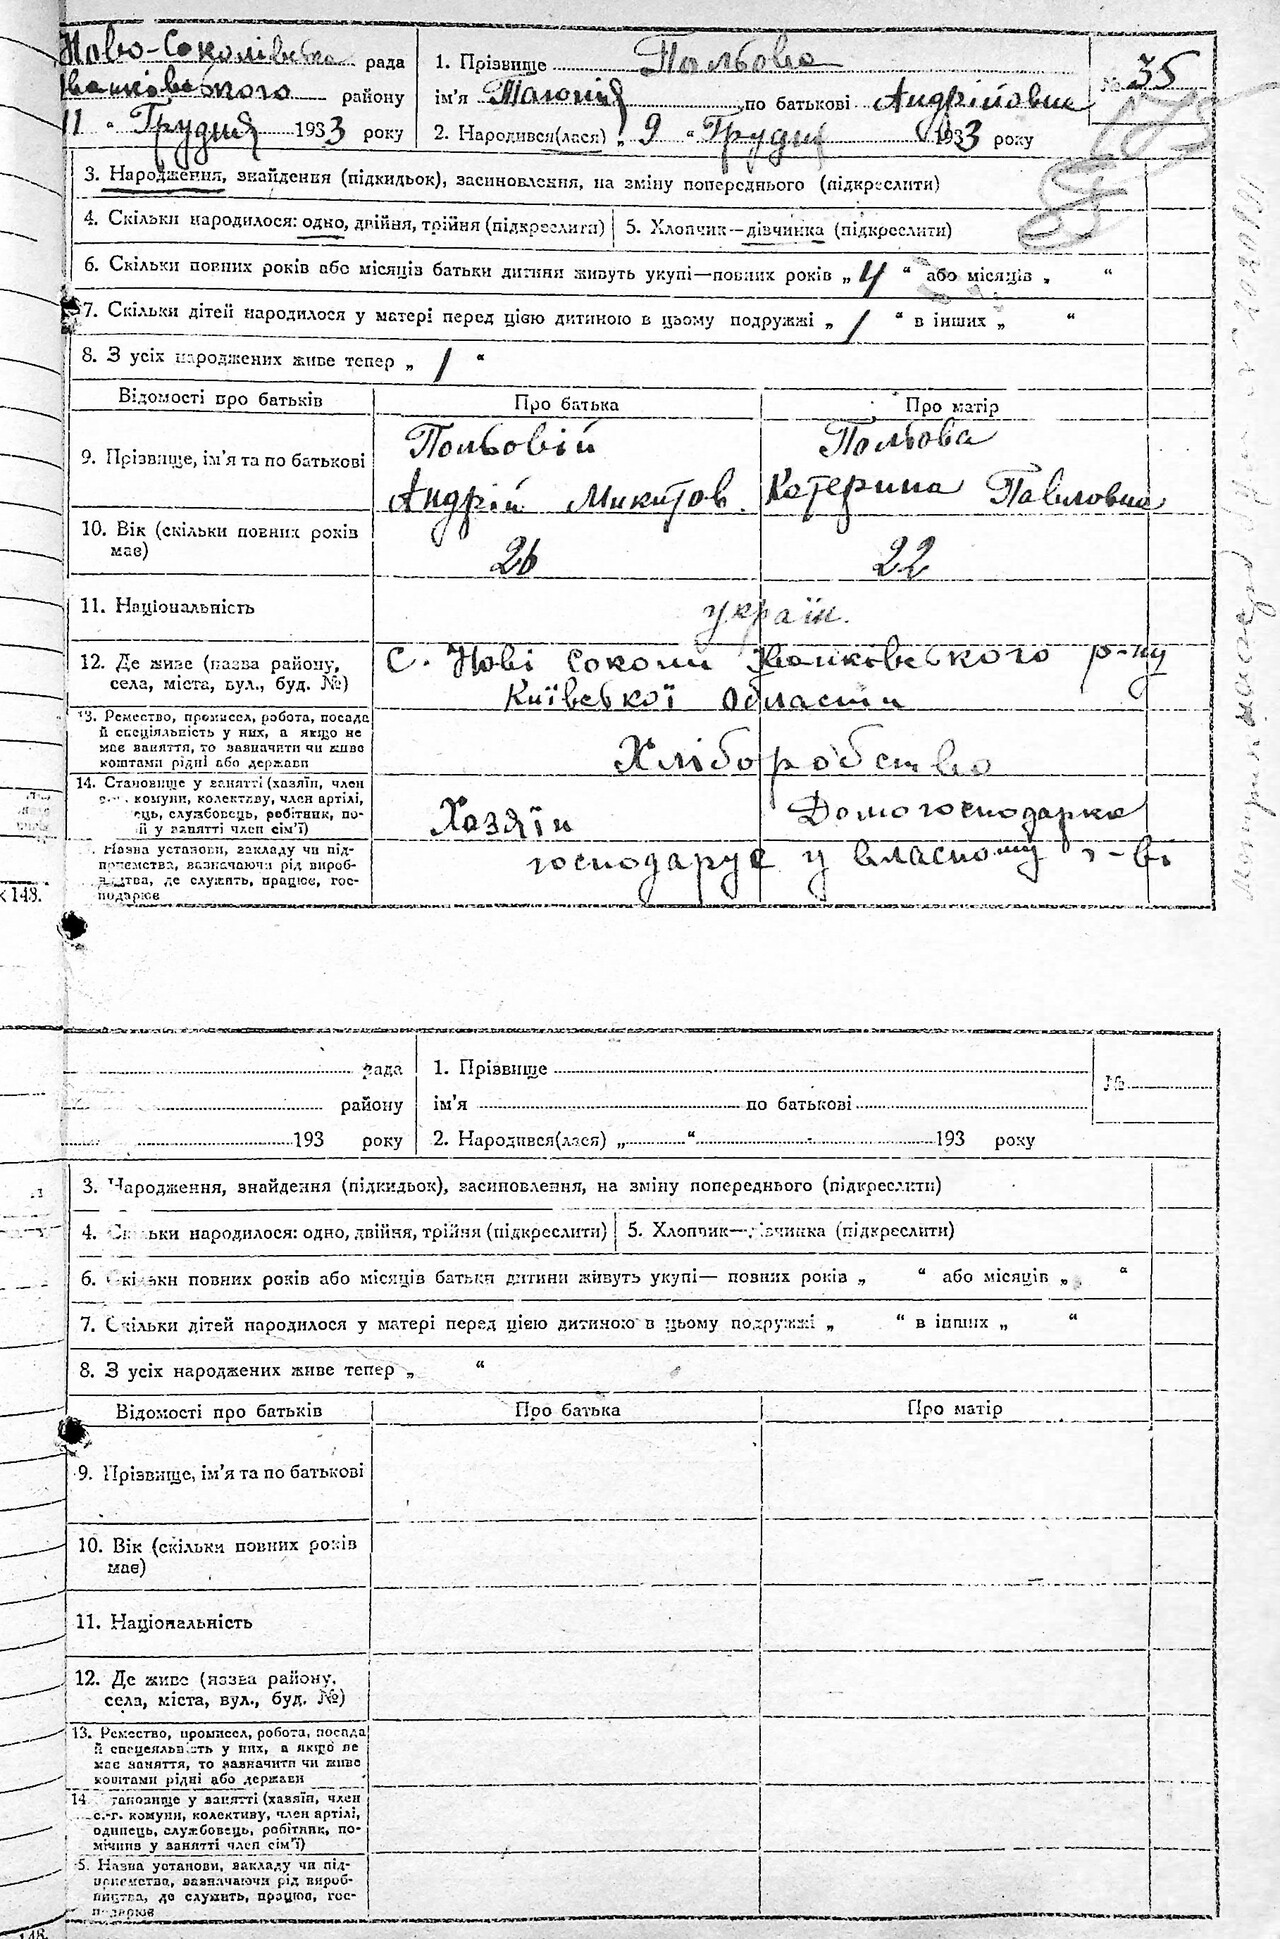 Ново-Соколівська рада
Іванківського району
11 " Грудня 1933 року
1. Прізвище Польова
ім'я по батькові Андріївна
2. Народився(лася) „ 9 " Грудня 1933 року
№ 35
3. Народження, знайдення (підкидьок), засиновлення, на зміну попереднього (підкреслити)
4. Скільки народилося: одно, двійня, трійня (підкреслити) 5. Хлопчик—дівчинка (підкреслити)
6. Скільки повних років або місяців батьки дитини живуть укупі—повних років „ 4 " або місяців „ "
7. Скільки дітей народилося у матері перед цією дитиною в цьому подружжі „ 1 " в інших „ "
8. З усіх народжених живе тепер „ 1 "
Відомості про батьків Про батька Про матір
9. Прізвище, ім'я та по батькові
Польовій Польова
Андрій Микитов. Катерина Павловна
10. Вік (скільки повних років
має)
26 22
11. Національність україн.
12. Де живе (назва району,
села, міста, вул., буд. №)
с. Нові Соколи Іванковського р-ну
Київської області
13. Ремество, промисел, робота, посада
й спеціяльність у них, а якщо не
має заняття, то зазначити чи живе
коштами рідні або держави
Хліборобство
14. Становище у занятті (хазяїн, член
комуни, колективу, член артілі,
службовець, робітник, по-
й у занятті член сім'ї)
Хазяїн Домогосподарка
Назва установи, закладу чи під-
приємства, зазначаючи рід вироб-
ництва, де служить, працює, гос-
подарює
господарує у власному г-ві
148.
рада
району
193 року
1. Прізвище
ім'я по батькові
2. Народився(лася) „ " 193 року
№
3. Народження, знайдення (підкидьок), засиновлення, на зміну попереднього (підкреслити)
4. Скільки народилося: одно, двійня, трійня (підкреслити) 5. Хлопчик—дівчинка (підкреслити)
6. Скільки повних років або місяців батьки дитини живуть укупі— повних років „ " або місяців „ "
7. Скільки дітей народилося у матері перед цією дитиною в цьому подружжі „ " в інших „ "
8. З усіх народжених живе тепер „ "
Відомості про батьків Про батька Про матір
9. Прізвище, ім'я та по батькові
10. Вік (скільки повних років
має)
11. Національність
12. Де живе (назва району,
села, міста, вул., буд. №)
13. Ремество, промисел, робота, посада
й спецеяльність у них, а якщо не
має заняття, то зазначити чи живе
коштами рідні або держави
14 тановище у занятті (хазяїн, член
с.-г. комуни, колективу, член артілі,
одинець, службовець, робітник, по-
мічник у занятті член сім'ї)
5. Назва установи, закладу чи під-
приємства, зазначаючи рід вироб-
ництва, де служить, працює, гос-
подарює
148.